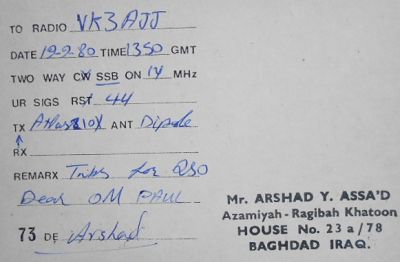 TO RADIO VK3AJJ
DATE 19-9-80 TIME 1350 GMT
TWO WAY CW SSB ON 14 MHz
UR SIGS RST 44
TX Atlas 210X ANT Dipole
RX
REMARX Tnks for QSO
Dear OM PAUL
73 DE Arshad
Mr. ARSHAD Y. ASSA'D
Azamiyah - Ragibah Khatoon
HOUSE No. 23 a / 78
BAGHDAD IRAQ.